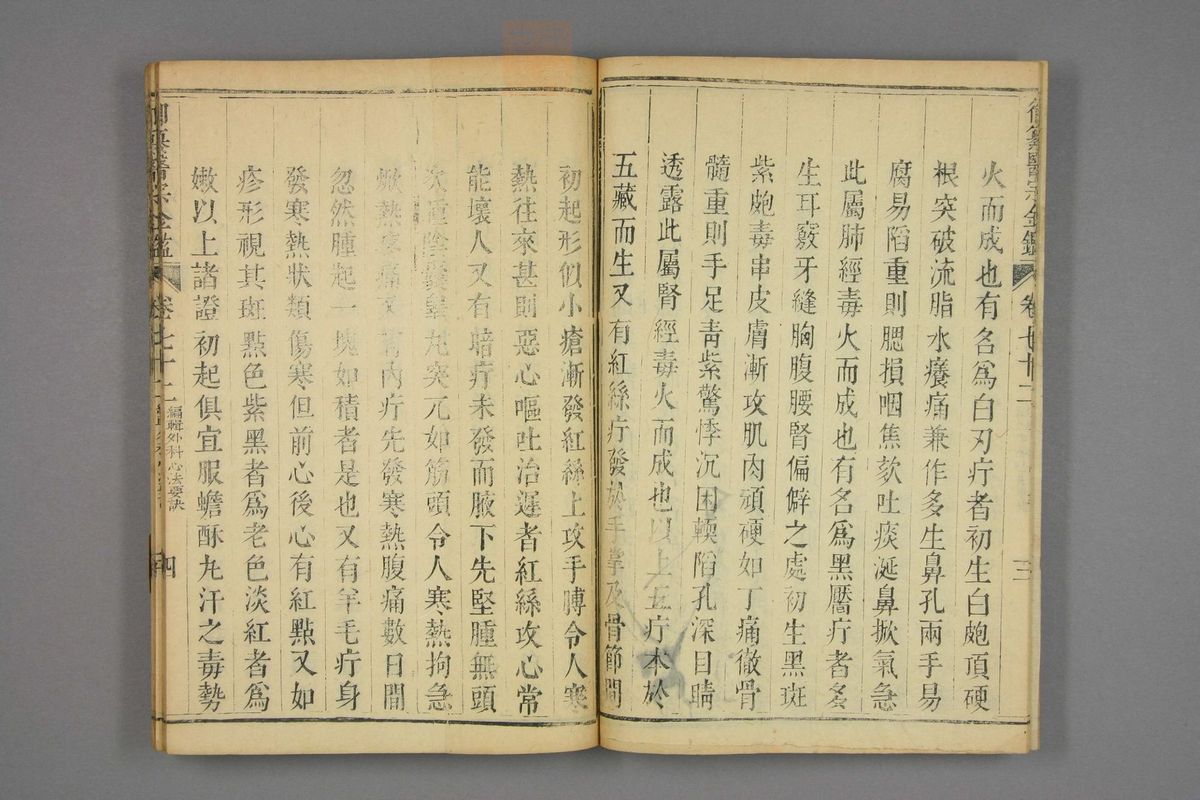 御纂醫宗金鑑 卷七十二 三
火而成也有名為白刃疔者初生白皰頂硬
根突破流脂水癢痛兼作多生鼻孔兩手易
腐易陷重則腮損咽焦欬吐痰涎鼻掀氣急
此屬肺經毒火而成也有名為黑靨疔者多
生耳竅牙縫胸腹腰腎偏僻之處初生黑斑
紫皰毒串皮膚漸攻肌肉頑硬如丁痛徹骨
髓重則手足青紫驚悸沉困輭陷孔深目睛
透露此屬腎經毒火而成也以上五疔本於
五藏而生又有紅絲疔發於手掌及骨節間
初起形似小瘡漸發紅絲上攻手膊令人寒
熱往來甚則惡心嘔吐治遲者紅絲攻心常
能壞人又有暗疔未發而腋下先堅腫無頭
次腫陰囊睾丸突兀如筋頭令人寒熱拘急
焮熱疼痛又有內疔先發寒熱腹痛數日間
忽然腫起一塊如積者是也又有羊毛疔身
發寒熱狀類傷寒但前心後心有紅點又如
疹形視其斑點色紫黑者為老色淡紅者為
嫩以上諸證初起俱宜服蟾酥丸汗之毒勢
御纂醫宗金鑑 卷七十二 編輯外科心法要訣 四